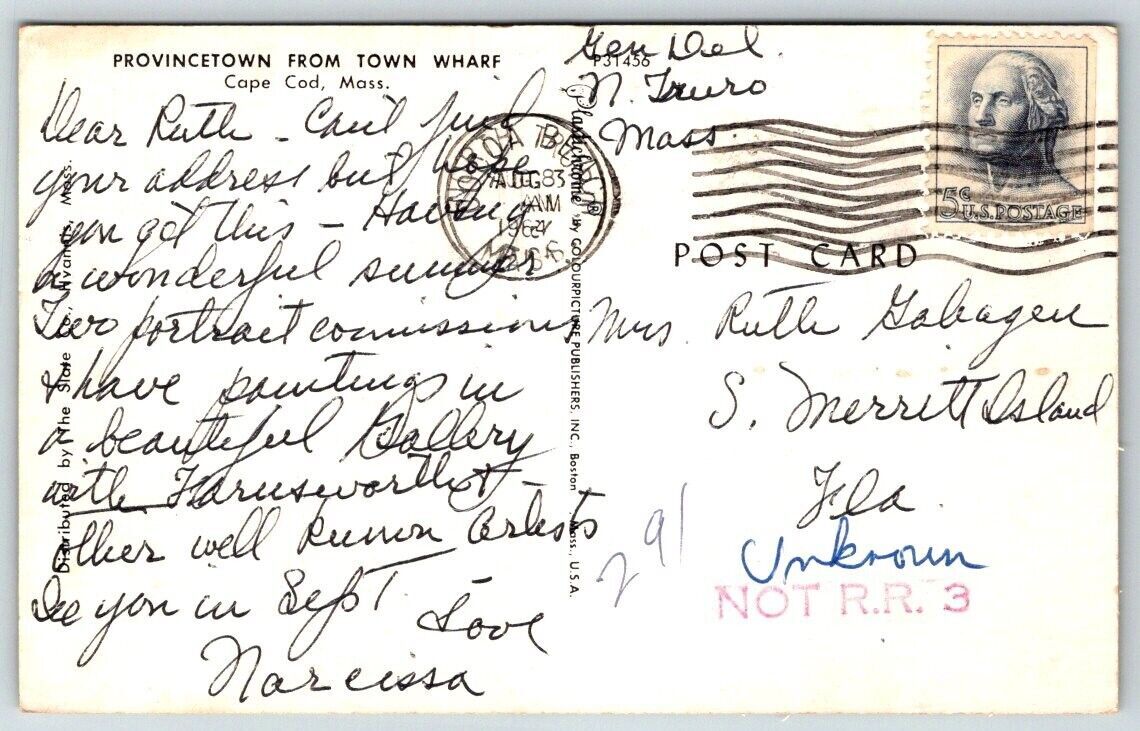 PROVINCETOWN FROM TOWN WHARF
Cape Cod, Mass.
Dear Ruth - Can't find
your address but hope
you got this - Having
a wonderful summer
Two portrait comissions
& have paintings in
a beautiful Gallery
with Farnsworth & -
other well known artists
See you in Sept
Love
Narcissa
Distributed by The
Mass.
P31456
Plastichrome by COLOURPICTURE PUBLISHERS, INC., Boston, Mass., U.S.A.
Gen Del.
N. Truro
Mass.
BEACH
AUG 3
AM
196
MASS
5¢ U.S. POSTAGE
POST CARD
Mrs. Ruth Gabagen
S. Merritt Island
Fla.
Unknown
NOT R.R. 3
291